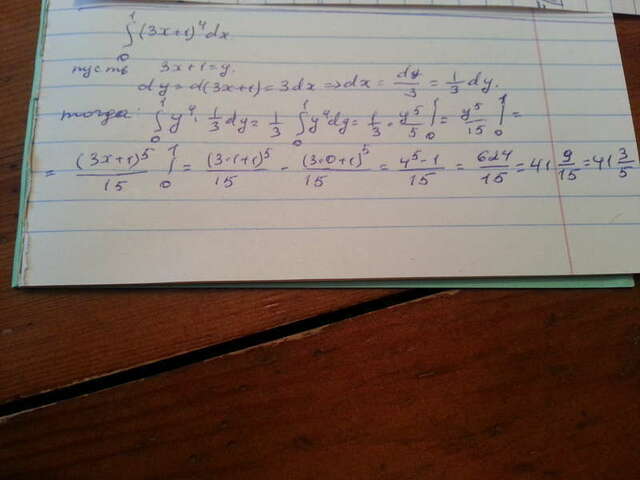 ∫₀¹ (3x+1)⁴ dx
пусть 3x+1=y.
dy = d(3x+1) = 3dx ⇒ dx = dy/3 = 1/3 dy.
тогда: ∫₀¹ y⁴ · 1/3 dy = 1/3 ∫₀¹ y⁴ dy = 1/3 · y⁵/5 |₀¹ = y⁵/15 |₀¹ =
= (3x+1)⁵/15 |₀¹ = (3·1+1)⁵/15 - (3·0+1)⁵/15 = 4⁵-1/15 = 624/15 = 41 9/15 = 41 3/5